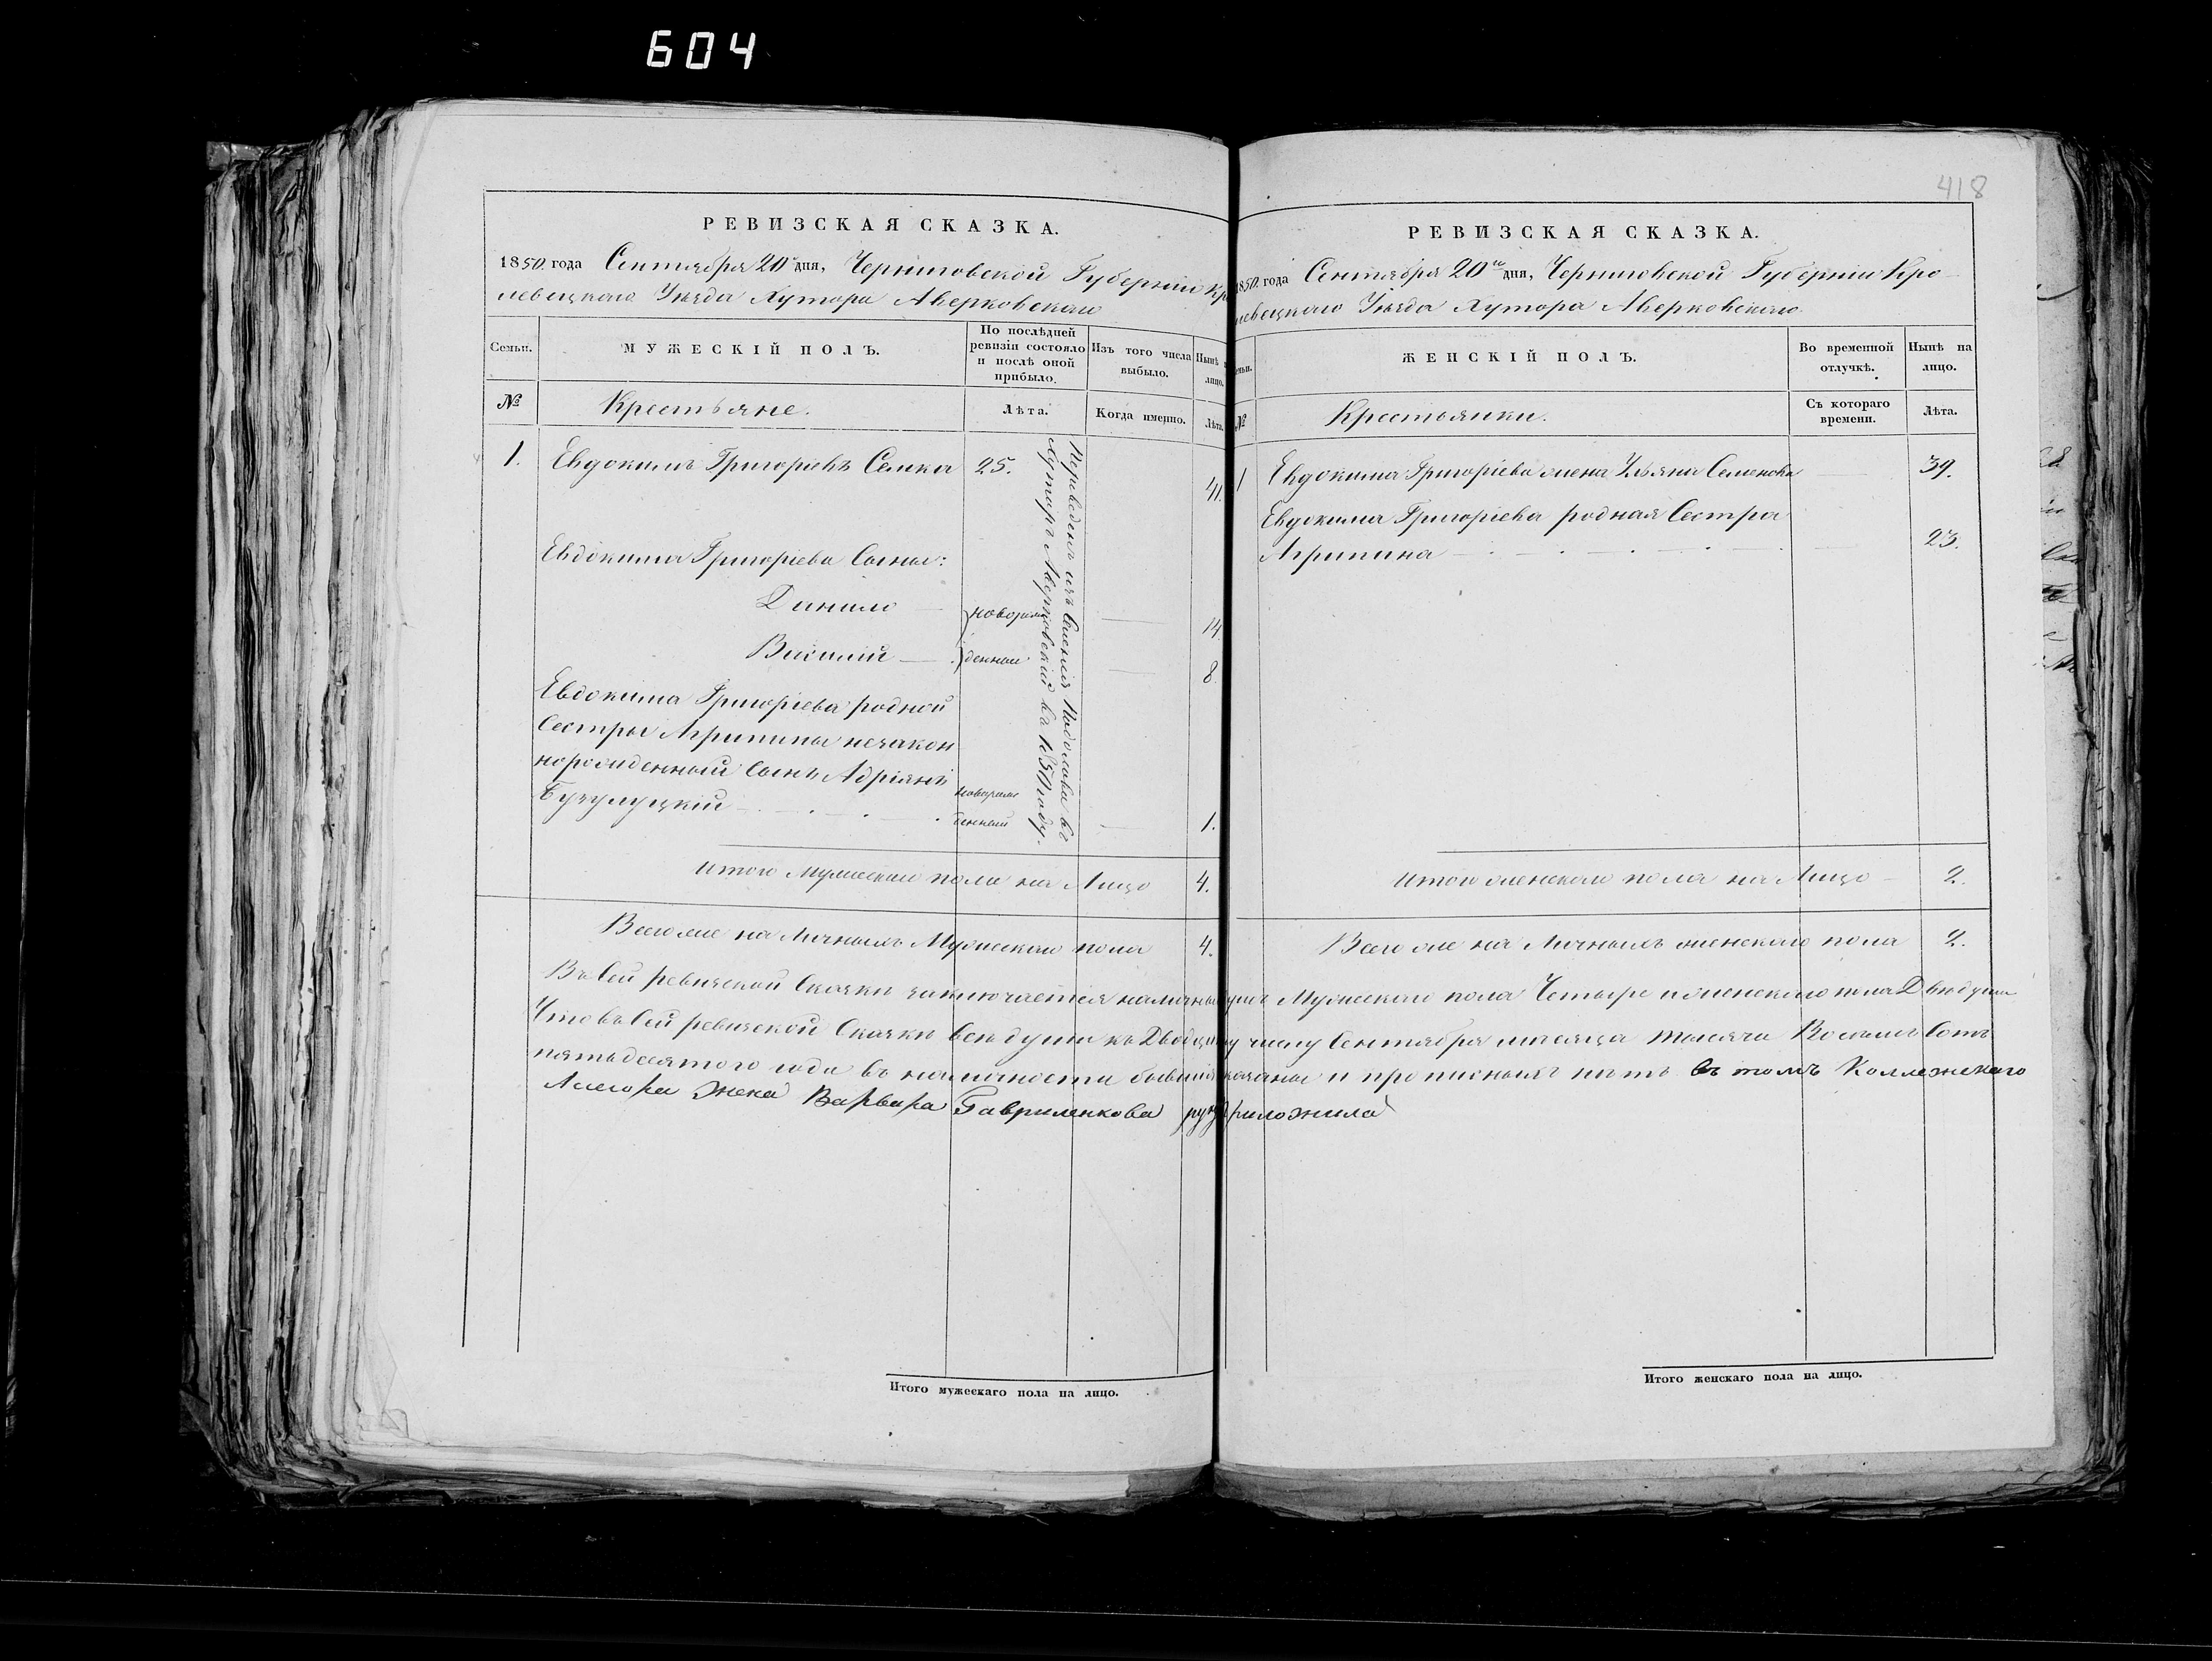 604
418
РЕВИЗСКАЯ СКАЗКА.
1850 года Сентября 20го дня, Черниговской Губерніи Кро
левецкаго Уезда Хутора Аверковскаго
Семьи.
МУЖЕСКІЙ ПОЛЪ.
По послѣдней
ревизіи состояло
и послѣ оной
прибыло.
Изъ того числа
выбыло.
Нынѣ
лицо.
№
Крестьяне.
Лѣта.
Когда именно.
Лѣта.
1. Евдокимъ Григорьевъ Семка 25. 41.
Переведенъ изъ Имения Подолова въ
Хуторъ Аверковский въ 1850 году.
Евдокима Григоріева Сыны:
Данило — новорож 14.
Василій — денныи 8.
Евдокима Григоріева родной
Сестры Агрипины незакон
норожденный Сынъ Адріянъ
Бузулуцкій новорож
денный 1.
Итого Мужескаго пола на Лицо 4.
Всего же на Личныхъ Мужескаго пола 4.
РЕВИЗСКАЯ СКАЗКА.
1850. года Сентября 20го дня, Черниговской Губерніи Кро
левецкаго Уезда Хутора Аверковскаго
ЖЕНСКІЙ ПОЛЪ.
Во временной
отлучкѣ.
Нынѣ на
лицо.
№
Крестьянки.
Съ котораго
времени.
Лѣта.
1 Евдокима Григоріева жена Ульяна Семенова 39.
Евдокима Григоріева родная Сестра
Агрипина 23.
Итого женскаго пола на Лицо 2.
Всего же на Личныхъ женскаго пола 2.
Въ Сей ревизской Сказки заключается душъ Мужескаго пола Четыре и женскаго пола Две души
Что въ Сей ревизской Сказке все души къ числу Сентября месяца тысяча Восемь Сотъ
пятьдесятого года въ наличности бывшие показаны и прописныхъ нетъ въ томъ Коллежскаго
Асесора жена Варвара Гавриленкова руку приложила
Итого мужескаго пола на лицо.
Итого женскаго пола на лицо.